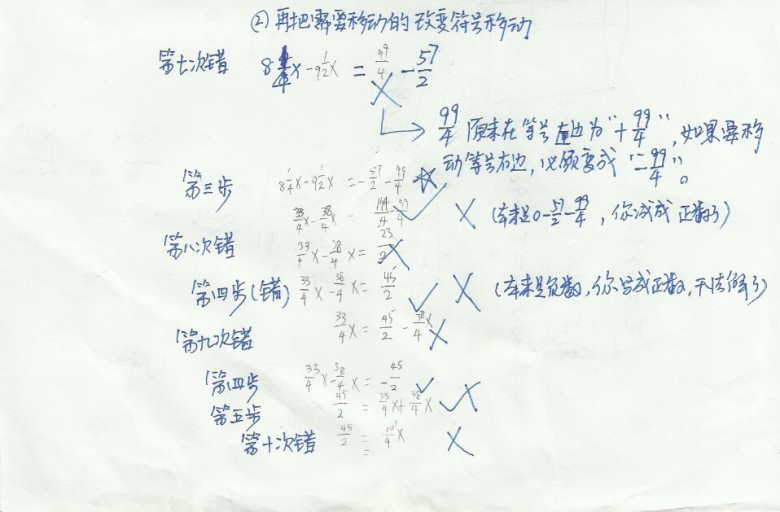 ② 再把需要移动的改变符号移动
第七次错 8 1/4x - 9 1/2x = 99/4 - 57/2
99/4 原来在等号左边为"+99/4", 如果要移
动等号右边, 必须变成 "-99/4"。
第三步 8 1/4x - 9 1/2x = -57/2 - 99/4
33/4x - 38/4x
(本来是0-57/2-99/4, 你减成正数了)
第八次错 33/4x - 38/4x =
第四步(错) 33/4x - 38/4x = 45/2
(本来是负数, 你写成正数, 无法解了)
第九次错 33/4x = 45/2 - 38/4x
第四步 33/4x - 38/4x = -45/2
第五步 45/2 = 33/4x + 38/4x
第十次错 45/2 =